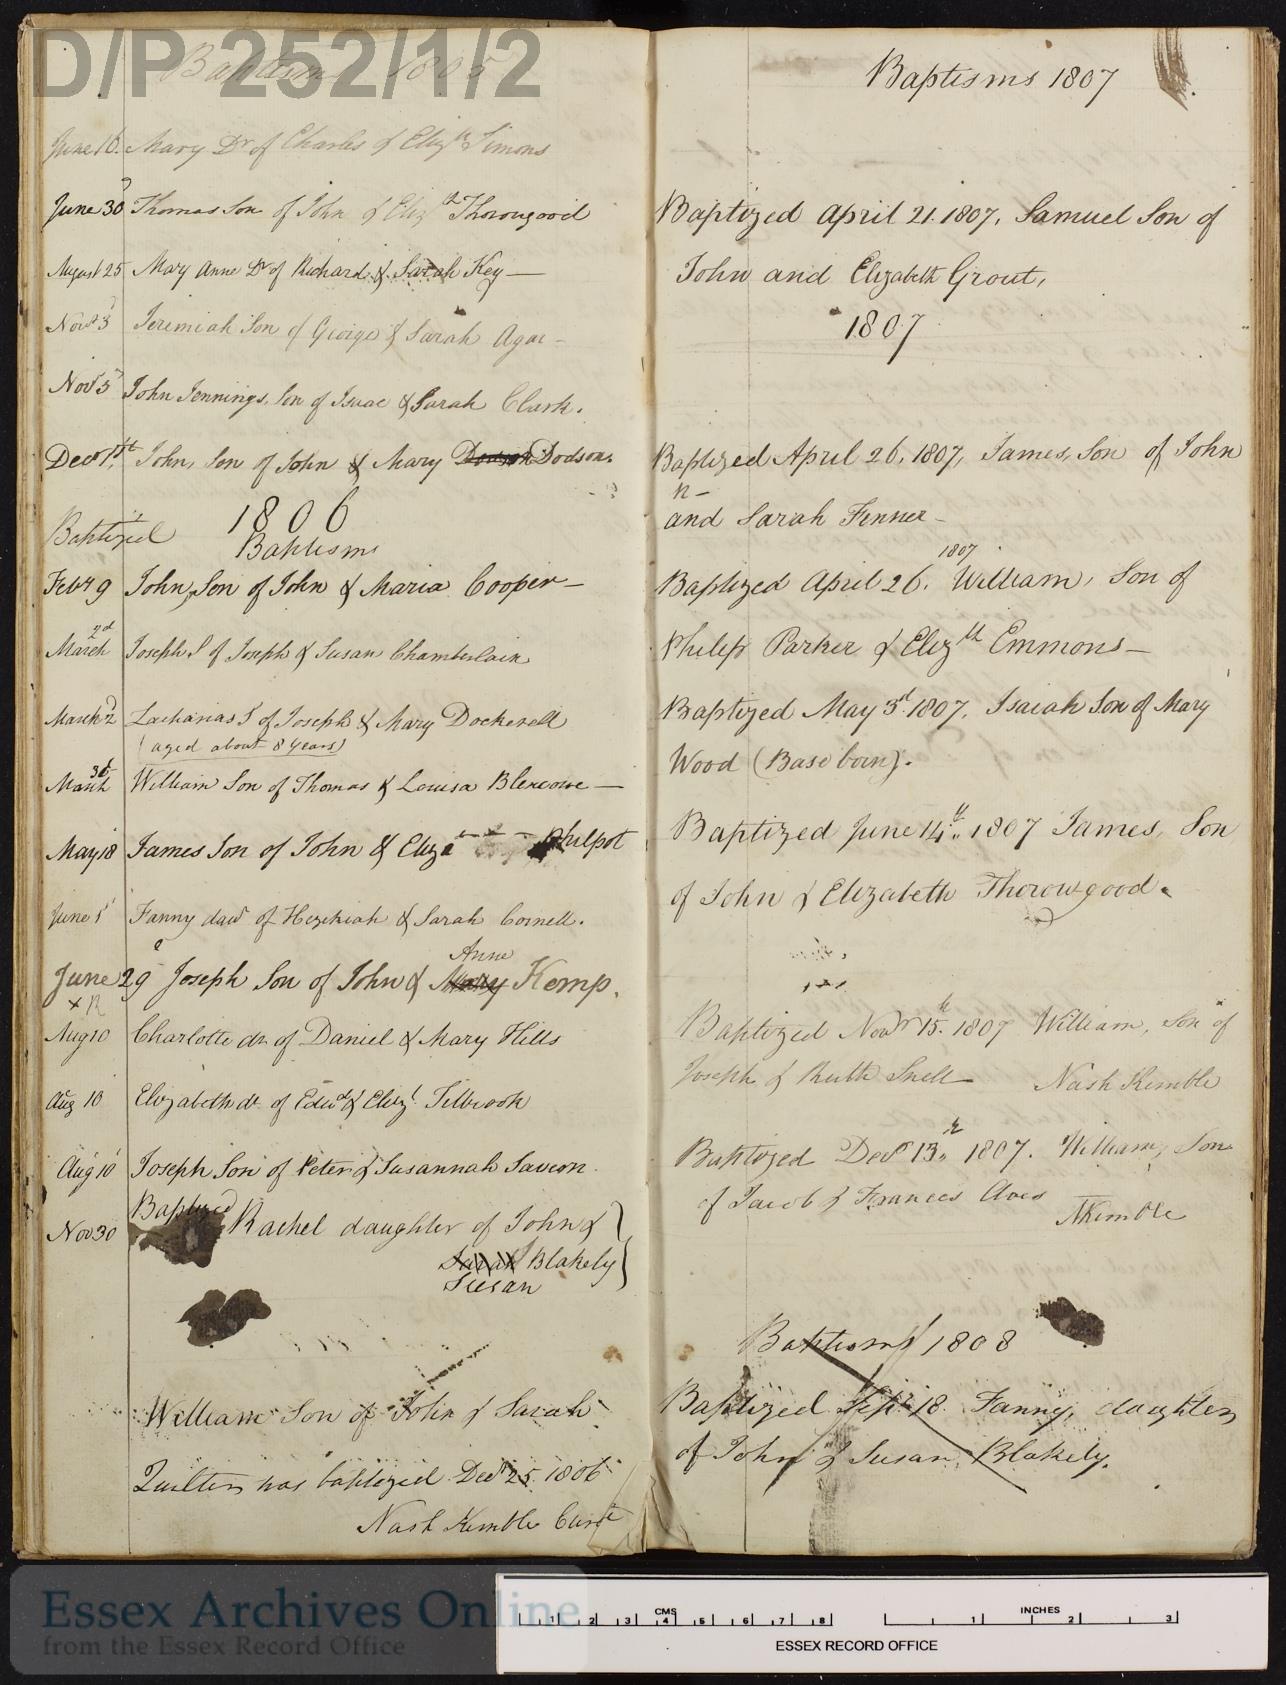 D/P 252/1/2
Baptisms 1805
June 16. Mary Dr of Charles & Elizth Simons
June 30 Thomas Son of John & Elizth Thorougood
August 25 Mary Anne Dr of Richard & Sarah Key —
Novr 3d Jeremiah Son of George & Sarah Agar —
Novr 3d John Jennings, Son of Isaac & Sarah Clark.
Decr 1st John, Son of John & Mary Dodson.
1806
Baptized
Baptisms
Febr 9 John, Son of John & Maria Cooper —
March 2d Joseph S of Joseph & Susan Chamberlain
March 2d Zacharias S of Joseph & Mary Dockerell
(aged about 8 years)
March 30 William Son of Thomas & Louisa Blencowe —
May 18 James Son of John & Eliza Philpot
June 1 Fanny daur of Hezekiah & Sarah Cornell.
Anne
June 29 Joseph Son of John & Mary Kemp.
Aug 10 Charlotte dr of Daniel & Mary Hills
Aug 10 Elizabeth dr of Edwd & Eliz Tilbrook
Aug 10 Joseph Son of Peter & Susannah Sawcon
Baptized
Nov 30 Rachel daughter of John &
Sarah Blakely
Susan
William Son of John & Sarah
Quilter was baptized Decr 25. 1806
Nash Kemble Curate
Baptisms 1807
Baptized April 21. 1807, Samuel Son of
John and Elizabeth Grout,
1807
Baptized April 26, 1807, James, Son of John
n —
and Sarah Finner —
1807
Baptized April 26. William, Son of
Philip Parker & Elizth Emmons —
Baptized May 3d 1807. Isaiah Son of Mary
Wood (Base born).
Baptized June 14th 1807 James, Son
of John & Elizabeth Thorowgood.
Baptized Novr 15th 1807 William, Son of
Joseph & Ruth Snell Nash Kemble
Baptized Decr 13th 1807. William, Son
of Jacob & Frances Aves
NKemble
Baptisms 1808
Baptized Sepr 18 Fanny, daughter
of John & Susan Blakely.
Essex Archives Online
from the Essex Record Office
CMS
1 2 3 4 5 6 7 8
INCHES
1 2 3
ESSEX RECORD OFFICE